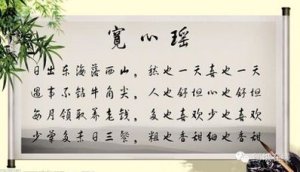 宽心瑶
日出东海落西山，愁也一天喜也一天
遇事不钻牛角尖，人也舒坦心也舒坦
每月领取养老钱，多也喜欢少也喜欢
少荤多素日三餐，粗也香甜细也香甜